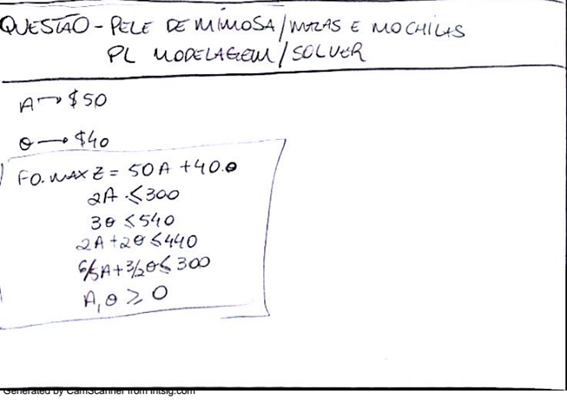 QUESTÃO - PELE DE MIMOSA / MALAS E MOCHILAS
PL MODELAGEM / SOLVER
A → $50
θ → $40
F.O. MAX Z = 50A + 40.θ
2A ≤ 300
3θ ≤ 540
2A + 2θ ≤ 440
6/5A + 3/2θ ≤ 300
A, θ ≥ 0
Generated by CamScanner from intsig.com